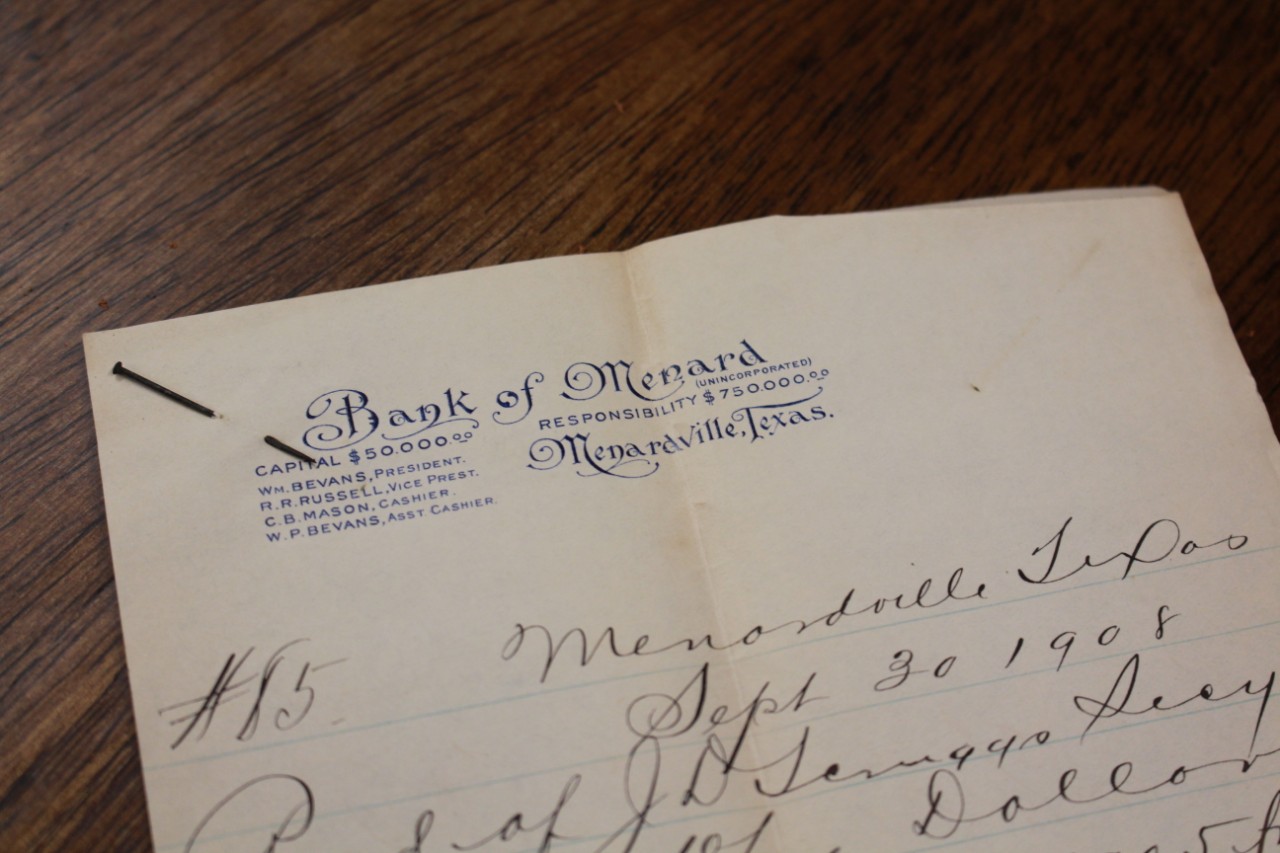 Bank of Menard
(UNINCORPORATED)
CAPITAL $50.000.00
RESPONSIBILITY $750.000.00
WM. BEVANS, PRESIDENT.
Menardville, Texas.
R.R. RUSSELL, VICE PREST.
C.B. MASON, CASHIER.
W.P. BEVANS, ASST. CASHIER.
Menardville Texas
#85
Sept 30 1908
of J D Scruggs Secy
Dollar